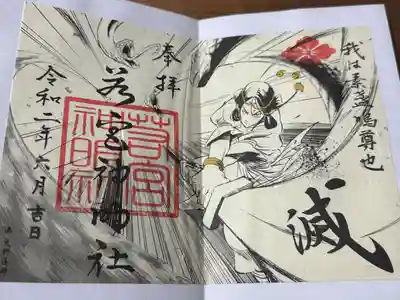 我は素盞嗚尊也
滅
奉拝
若宮神明社
若宮
神明社
令和二年六月吉日